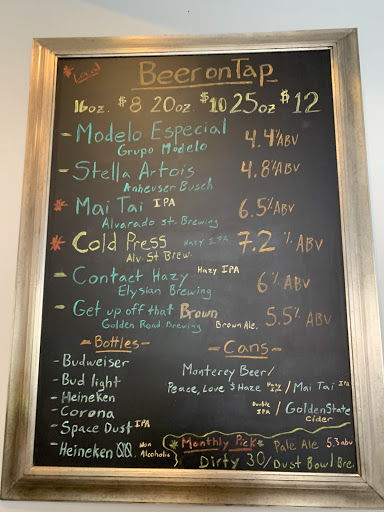 * Local
Beer on Tap
16oz. $8 20oz $10 25oz $12
- Modelo Especial 4.4% ABV
Grupo Modelo
- Stella Artois 4.8% ABV
Anheuser Busch
* Mai Tai IPA 6.5% ABV
Alvarado st. Brewing
* Cold Press Hazy IPA 7.2 % ABV
Alv. St Brew.
- Contact Hazy Hazy IPA 6% ABV
Elysian Brewing
- Get up off that Brown 5.5% ABV
Golden Road Brewing Brown Ale.
- Bottles -
- Budweiser
- Bud light
- Heineken
- Corona
- Space Dust IPA
- Heineken Non Alcoholic
- Cans -
Monterey Beer/
Peace, Love $ Haze Hazy IPA / Mai Tai IPA
Double IPA / Golden State Cider
* Monthly Pick * Pale Ale 5.3 abv
Dirty 30 / Dust Bowl Bre.